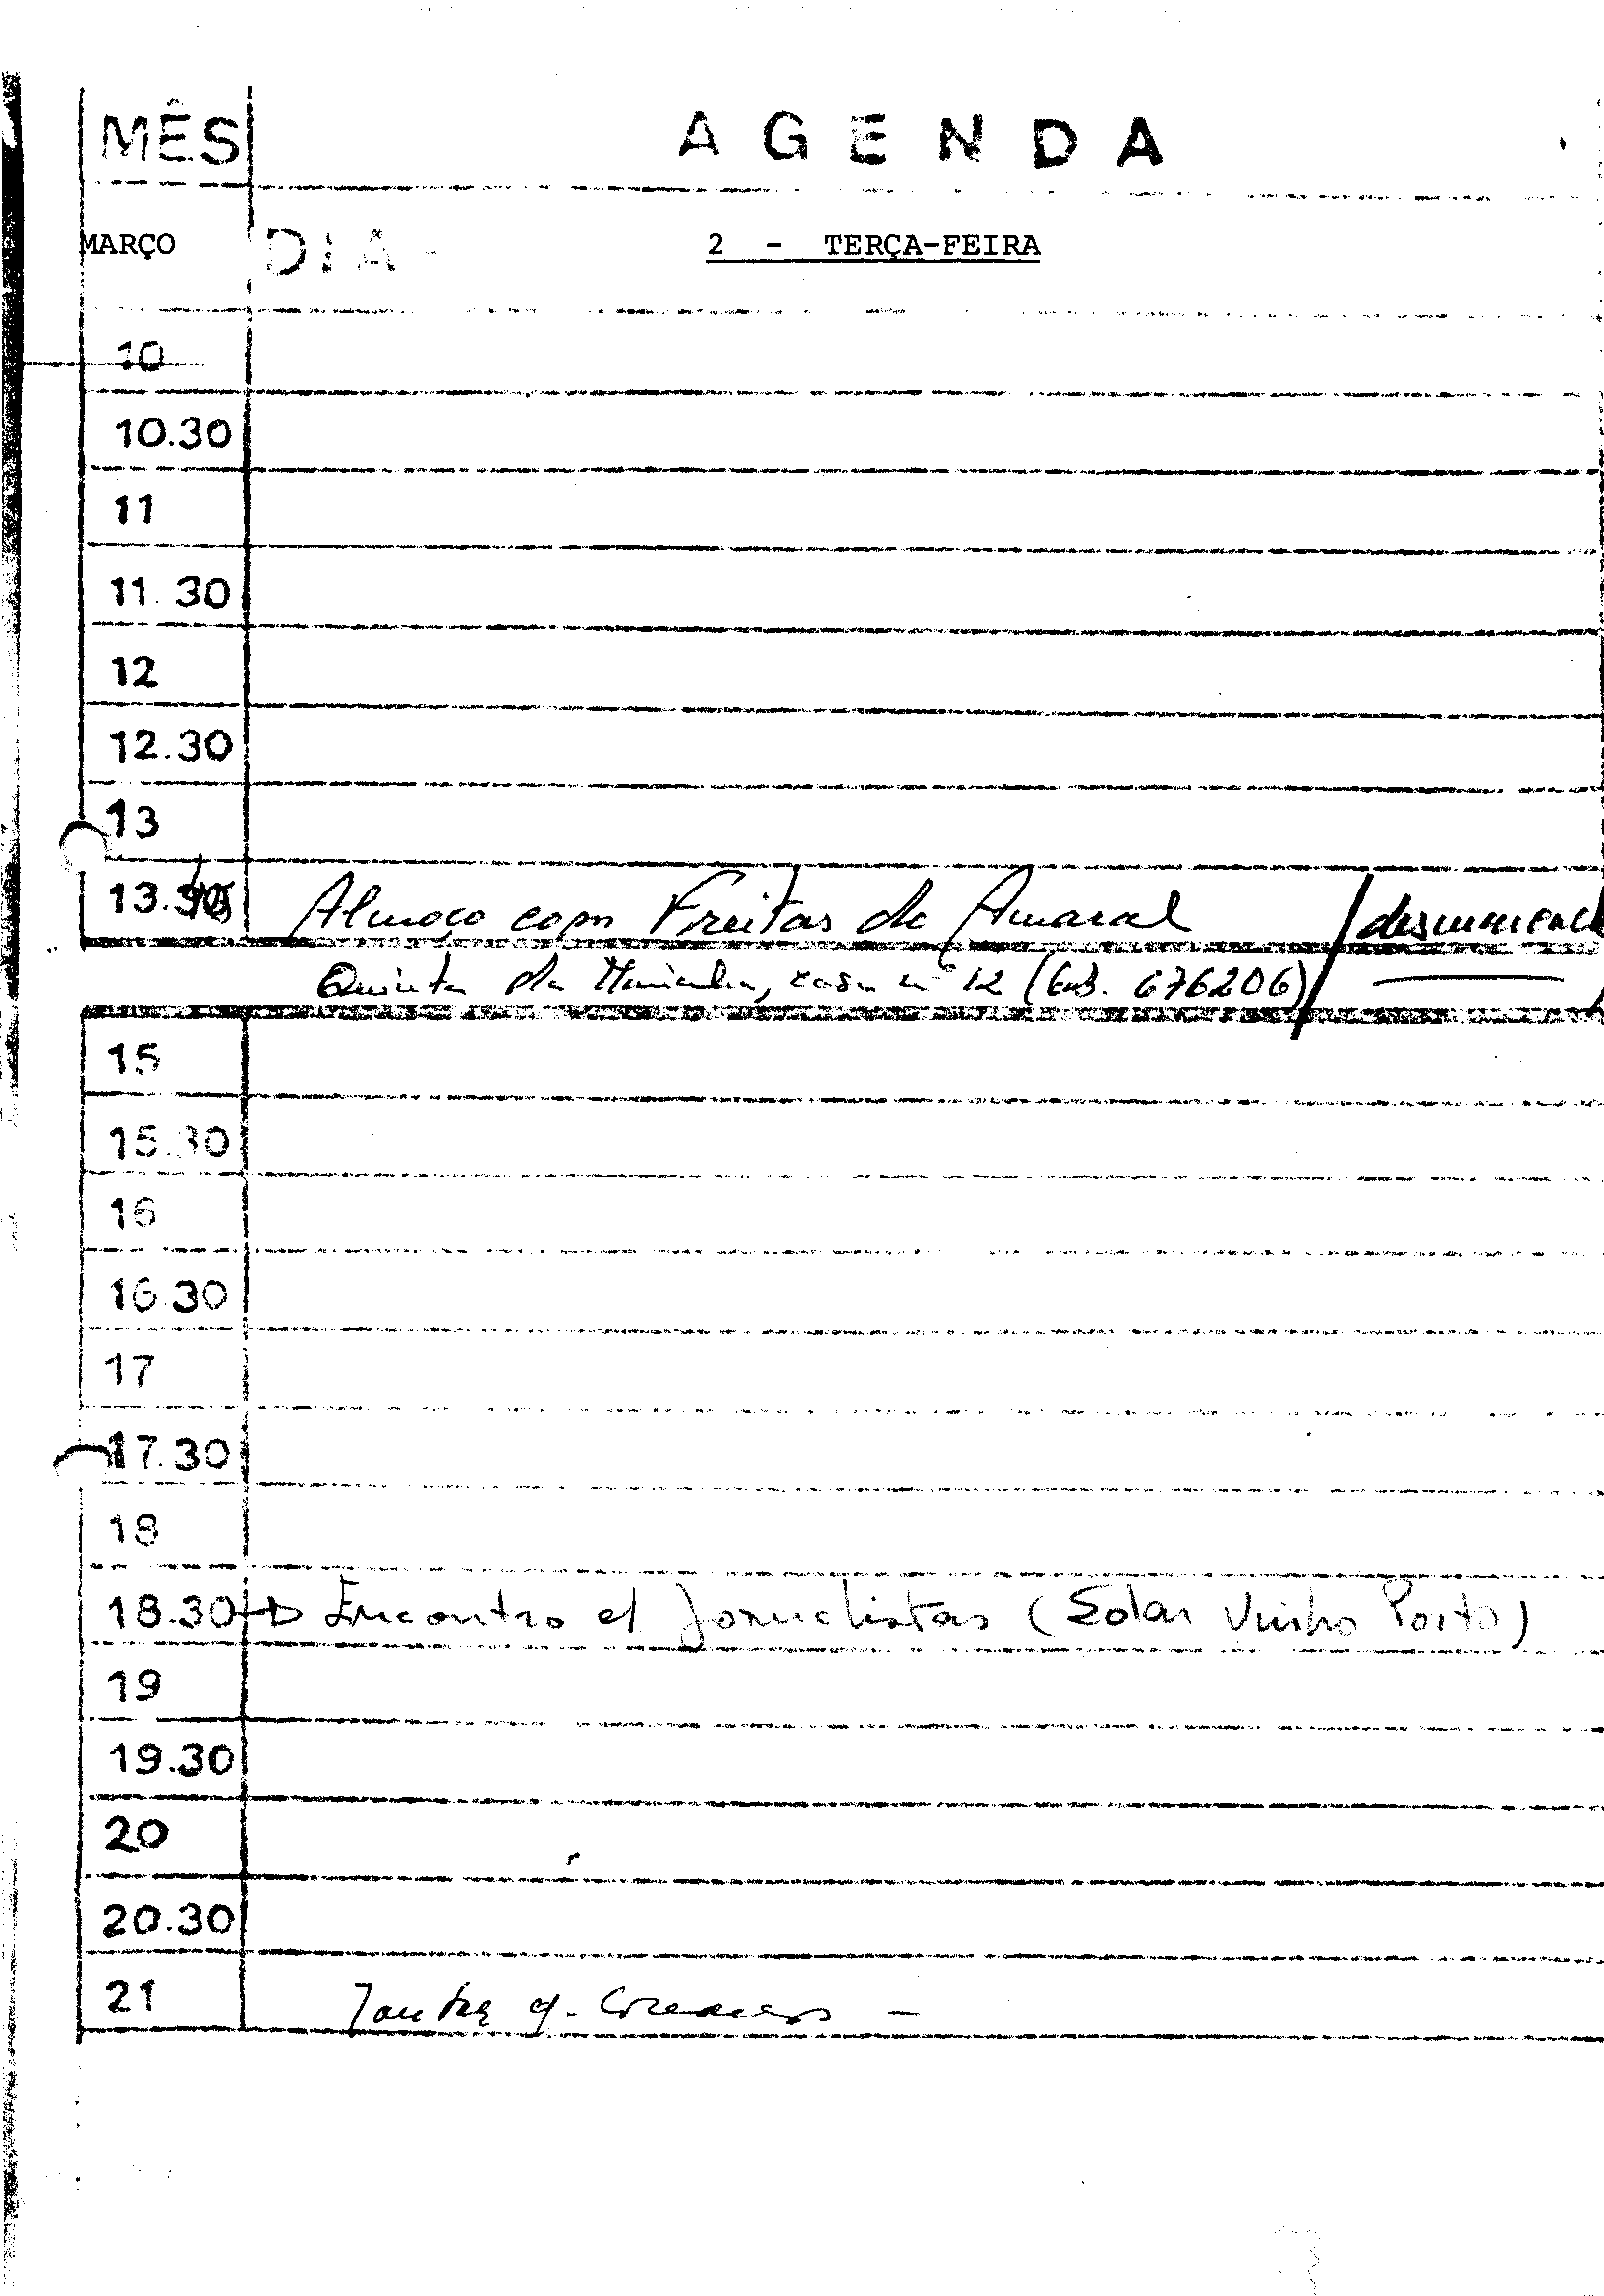 MÊS A G E N D A
MARÇO DIA 2 - TERÇA-FEIRA
10
10.30
11
11.30
12
12.30
13
13. Almoço com Freitas de Amaral
Quinta da Marinha, casa nº 12 ( 676206)
15
15.30
16
16.30
17
17.30
18
18.30 Encontro c/ Jornalistas (Solar Vinho Porto)
19
19.30
20
20.30
21 Jantar